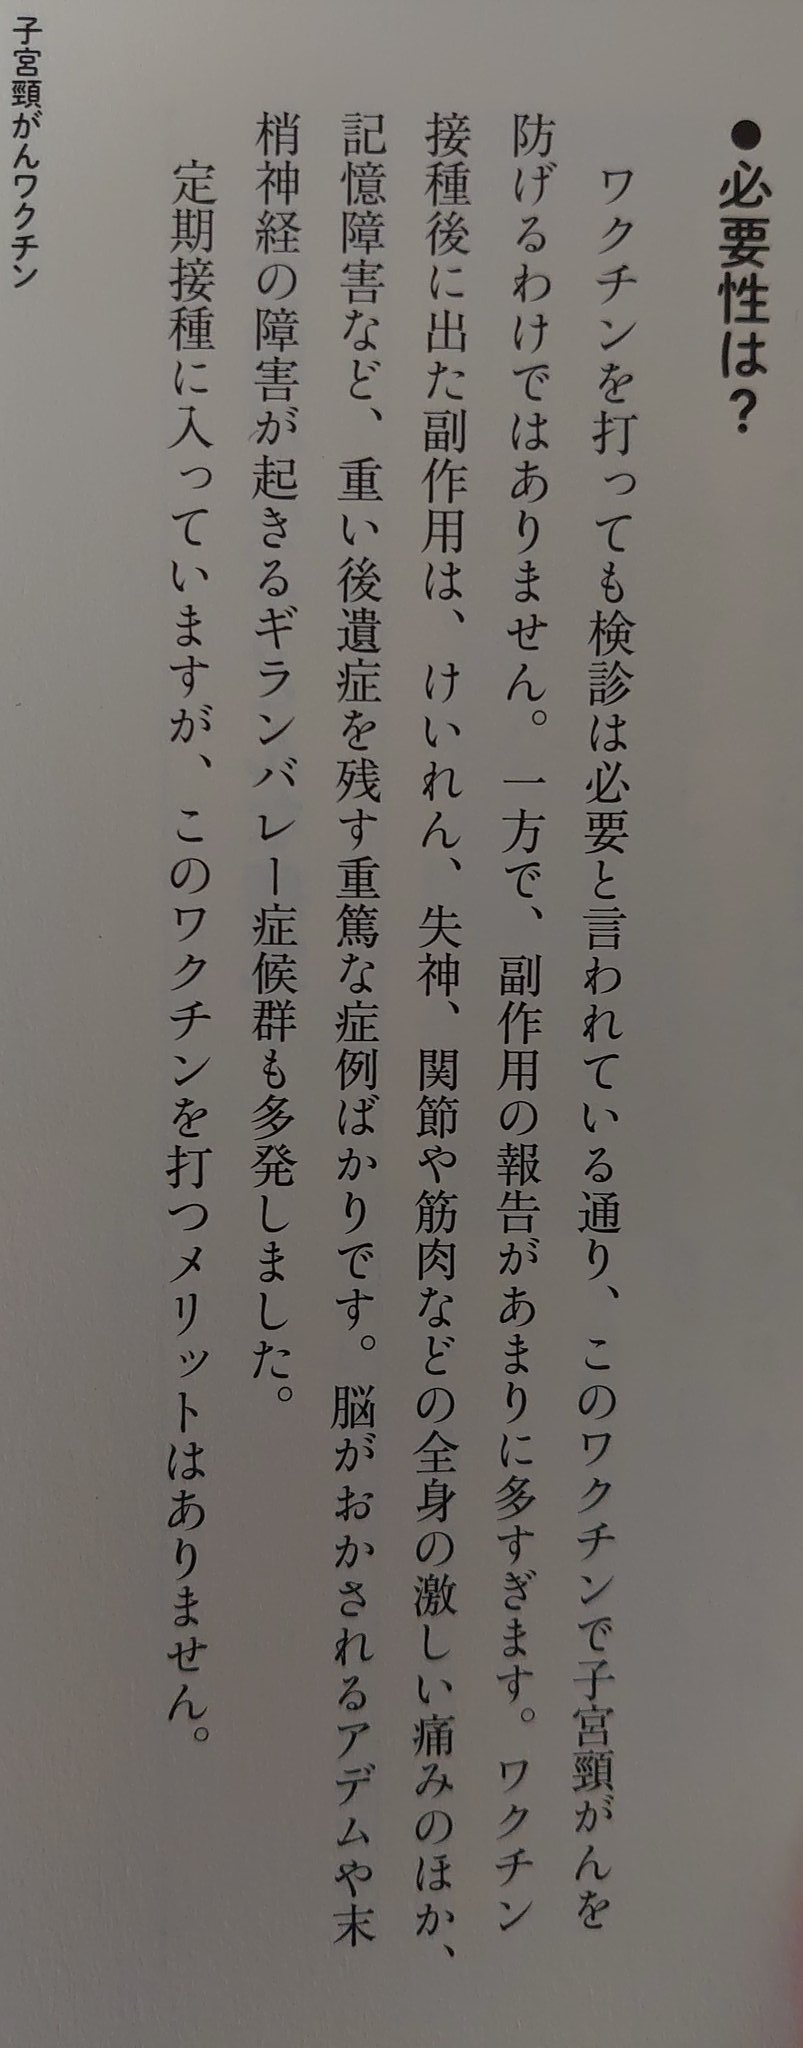 ●必要性は?
ワクチンを打っても検診は必要と言われている通り、このワクチンで子宮頸がんを
防げるわけではありません。一方で、副作用の報告があまりに多すぎます。ワクチン
接種後に出た副作用は、けいれん、失神、関節や筋肉などの全身の激しい痛みのほか、
記憶障害など、重い後遺症を残す重篤な症例ばかりです。脳がおかされるアデムや末
梢神経の障害が起きるギランバレー症候群も多発しました。
定期接種に入っていますが、このワクチンを打つメリットはありません。
子宮頸がんワクチン